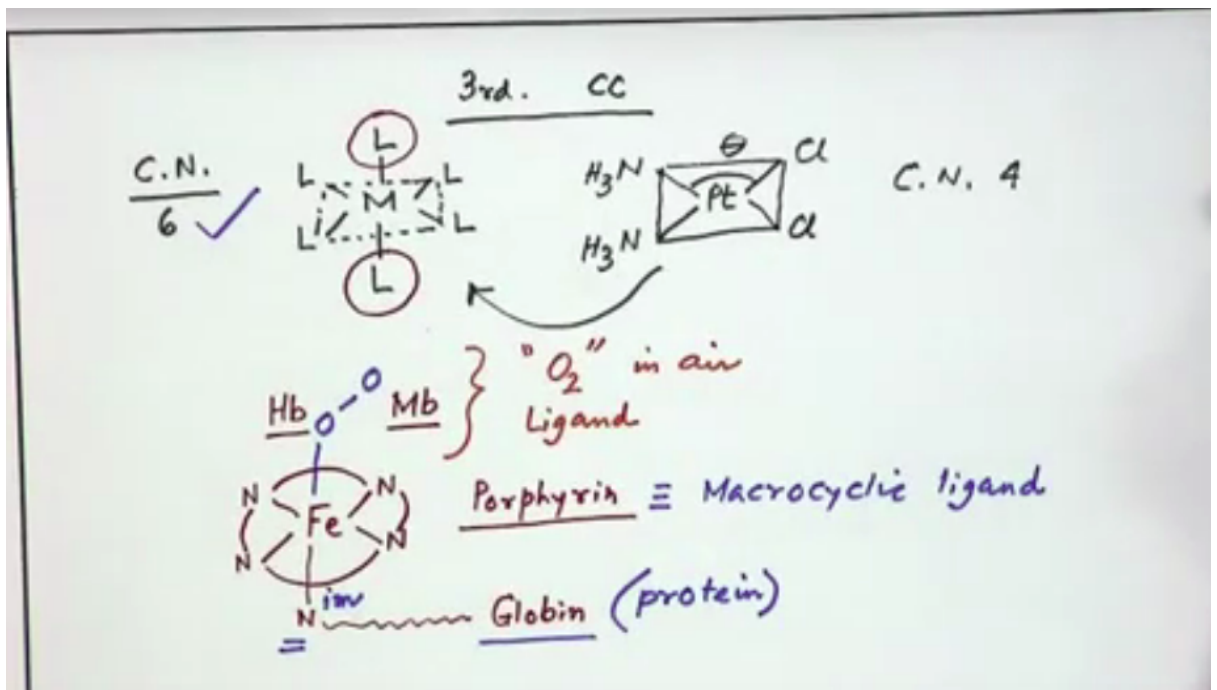 3rd. CC
C.N.
6
L
L L
M
L L
L
H3N Cl
θ
Pt
H3N Cl
C.N. 4
Hb O O Mb } "O2" in air
Ligand
N N
Fe
N N
Porphyrin ≡ Macrocyclic ligand
N im Globin (protein)